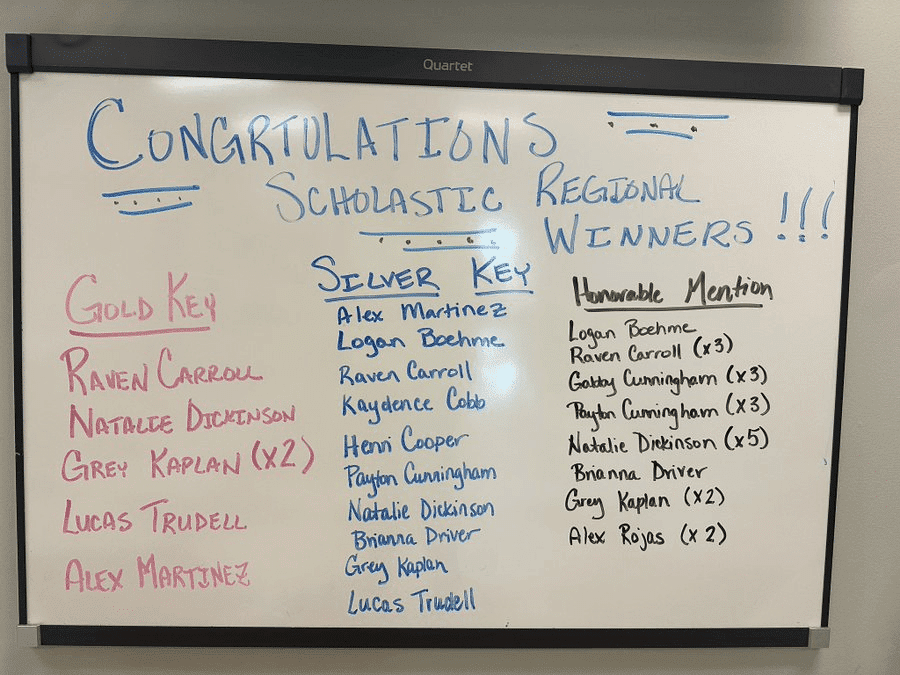 Quartet
CONGRTULATIONS
SCHOLASTIC REGIONAL
WINNERS !!!
GOLD KEY
RAVEN CARROLL
NATALIE DICKINSON
GREY KAPLAN (x2)
LUCAS TRUDELL
ALEX MARTINEZ
SILVER KEY
Alex Martinez
Logan Boehme
Raven Carroll
Kaydence Cobb
Henri Cooper
Payton Cunningham
Natalie Dickinson
Brianna Driver
Grey Kaplan
Lucas Trudell
Honorable Mention
Logan Boehme
Raven Carroll (x3)
Gabby Cunningham (x3)
Payton Cunningham (x3)
Natalie Dickinson (x5)
Brianna Driver
Grey Kaplan (x2)
Alex Rojas (x2)